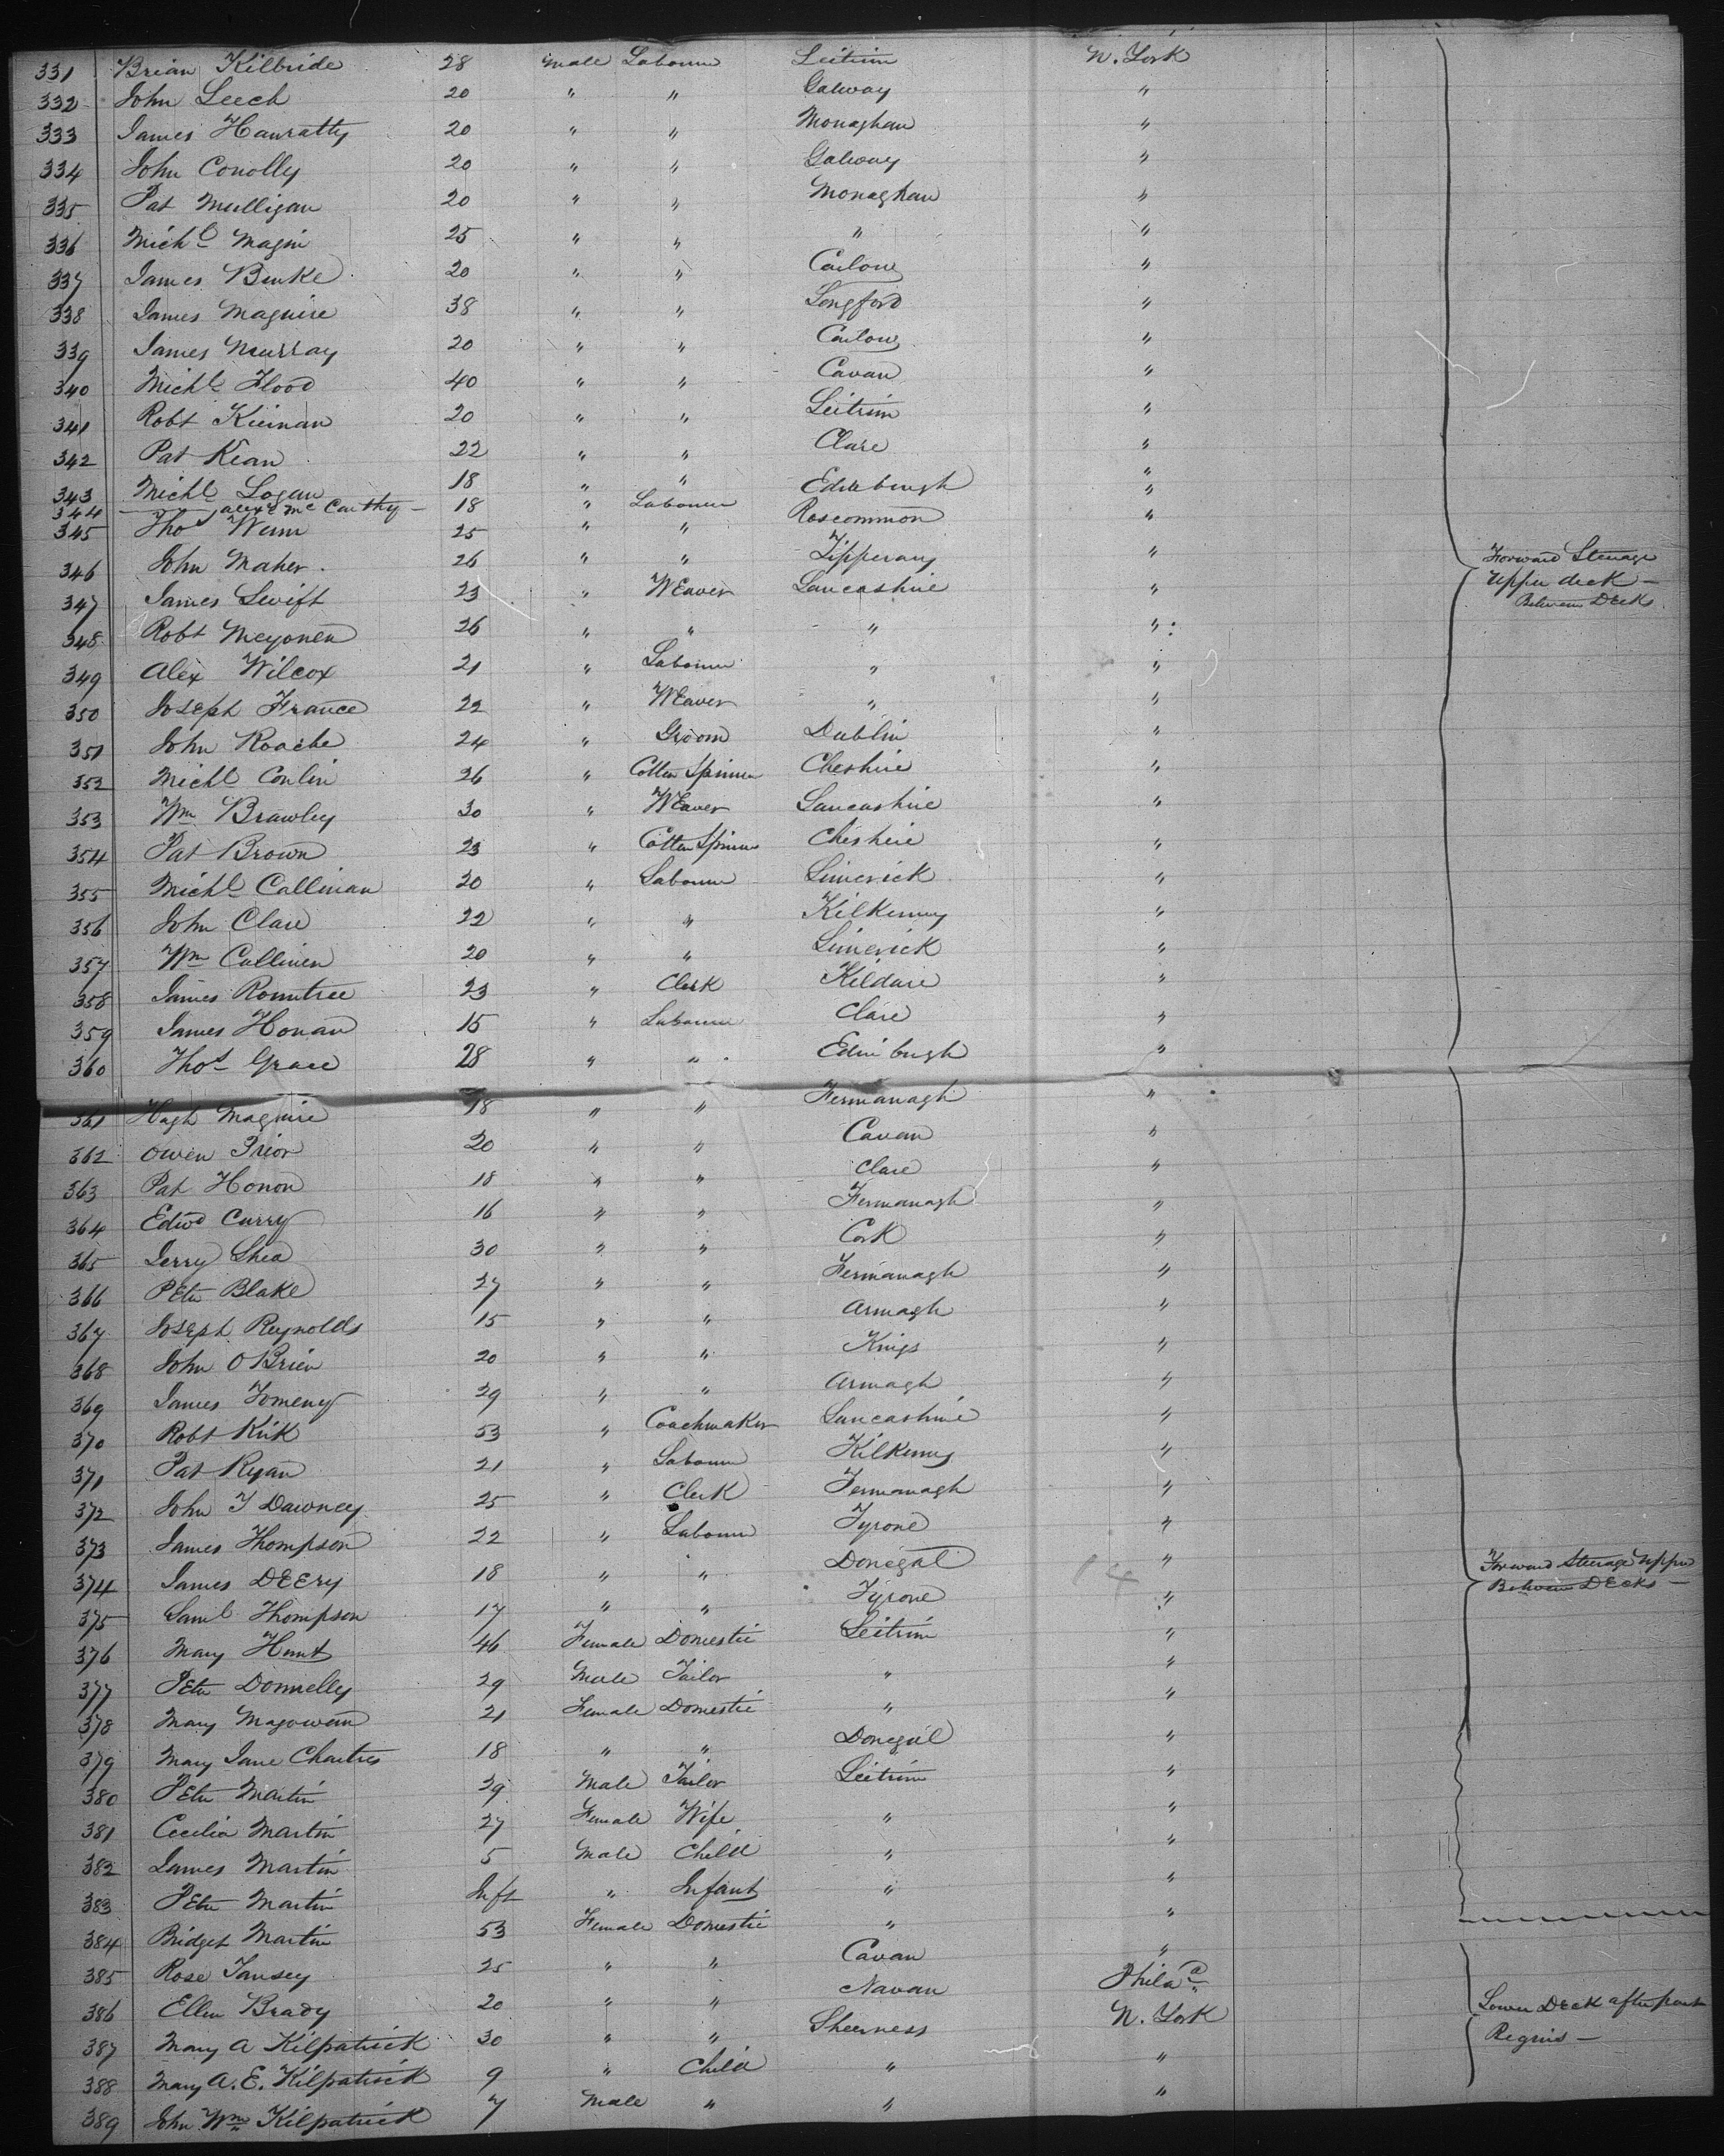 331 Brian Kilbride 28 Male Labourer Leitrim N. York
332 John Leech 20 " " Galway "
333 James Hanratty 20 " " Monaghan "
334 John Conolly 20 " " Galway "
335 Pat Mulligan 20 " " Monaghan "
336 Michl Magin 25 " " " "
337 James Burke 20 " " Carlow "
338 James Maguire 38 " " Longford "
339 James Murray 20 " " Carlow "
340 Michl Flood 40 " " Cavan "
341 Robt Kiernan 20 " " Leitrim "
342 Pat Kean 22 " " Clare "
343 Michl Logan 18 " " Edinburgh "
344 Alexr Mc Carthy 18 " Labourer "
345 Thos Wenn 25 " " Roscommon "
346 John Maher 26 " " Tipperary "
347 James Swift 23 " Weaver Lancashire "
348 Robt 26 " " " "
349 Alex Wilcox 21 " Labourer " "
350 Joseph France 22 " Weaver " "
351 John Roache 24 " Groom Dublin "
352 Michl Conlin 26 " Cotton Spinner Cheshire "
353 Wm Brawley 30 " Weaver Lancashire "
354 Pat Brown 23 " Cotton Spinner Cheshire "
355 Michl Callinan 20 " Labourer Limerick "
356 John Clare 22 " " Kilkenny "
357 Wm Cullinen 20 " " Limerick "
358 James Rountree 23 " Clerk Kildare "
359 James Honan 15 " Labourer Clare "
360 Thos Grace 28 " " Edinburgh "
Forward Steerage
Upper deck —
Between Decks
361 Hugh Maguire 18 " " Fermanagh "
362 Owen Prior 20 " " Cavan "
363 Pat Honon 18 " " Clare "
364 Edwd Curry 16 " " Fermanagh "
365 Jerry Shea 30 " " Cork "
366 Peter Blake 27 " " Fermanagh "
367 Joseph Reynolds 15 " " Armagh "
368 John O Brien 20 " " Kings "
369 James Tomeny 29 " " Armagh "
370 Robt Kirk 53 " Coachmaker Lancashire "
371 Pat Ryan 21 " Labourer Kilkenny "
372 John T Dawney 25 " Clerk Fermanagh "
373 James Thompson 22 " Labourer Tyrone "
374 James Deery 18 " " Donegal "
375 Saml Thompson 17 " " Tyrone "
376 Mary Hunt 46 Female Domestic Leitrim "
377 Peter Donnelly 29 Male Tailor " "
378 Mary Magowan 21 Female Domestic " "
379 Mary Jane Chartres 18 " " Donegal "
380 Peter Martin 29 Male Tailor Leitrim "
381 Cecilia Martin 27 Female Wife " "
382 James Martin 5 Male Child " "
383 Peter Martin Inft " Infant " "
384 Bridget Martin 53 Female Domestic " "
Forward Steerage Upper
Between Decks —
385 Rose Tansey 25 " " Cavan "
386 Ellen Brady 20 " " Navan Phila a
387 Mary A Kilpatrick 30 " " Sheerness N. York
388 Mary A. E. Kilpatrick 9 " Child " "
389 John Wm Kilpatrick 7 Male " " "
Lower Deck after part